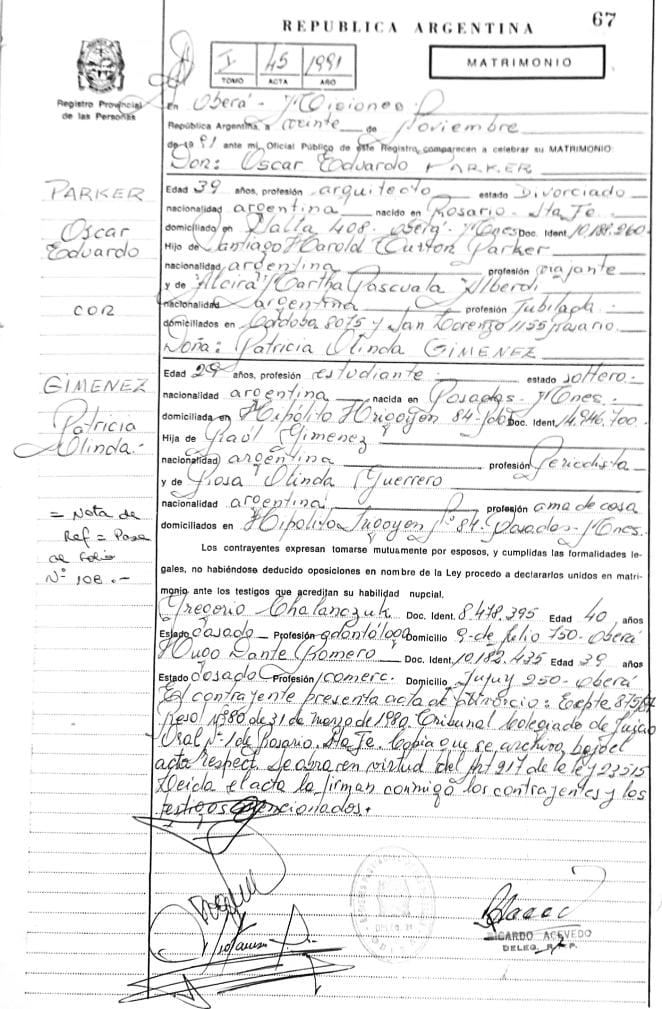 REPUBLICA ARGENTINA
67
I 45 1991
TOMO ACTA AÑO
MATRIMONIO
Registro Provincial
de las Personas
En Oberá - Misiones
República Argentina, a veinte de Noviembre
de 19 91 ante mí, Oficial Público de este Registro, comparecen a celebrar su MATRIMONIO:
Don: Oscar Eduardo PARKER
PARKER
Oscar
Eduardo
con
GIMENEZ
Patricia
Olinda.-
= Nota de
Ref = Pase
al folio
Nº 108.-
Edad 39 años, profesión arquitecto estado Divorciado
nacionalidad argentina nacido en Rosario - Sta Fe
domiciliado en Salta 408. Oberá - Mnes Doc. Ident. 10.188.260
Hijo de Santiago Harold Parker
nacionalidad argentina profesión viajante
y de Alcira Martha Pascuala Alberdi
nacionalidad argentina profesión Jubilada
domiciliados en Córdoba 8075 y San Lorenzo 1155 Rosario
Doña: Patricia Olinda GIMENEZ
Edad 29 años, profesión estudiante estado soltero
nacionalidad argentina nacida en Posadas - Mnes.
domiciliada en Hipólito Yrigoyen 84 Doc. Ident. 14.946.700
Hija de Raúl Gimenez
nacionalidad argentina profesión Periodista
y de Rosa Olinda Guerrero
nacionalidad argentina profesión ama de casa
domiciliados en Hipólito Nº 84. Posadas - Mnes.
Los contrayentes expresan tomarse mutuamente por esposos, y cumplidas las formalidades le-
gales, no habiéndose deducido oposiciones en nombre de la Ley procedo a declararlos unidos en matri-
monio ante los testigos que acreditan su habilidad nupcial.
Gregorio Chalanczuk Doc. Ident. 8.478.395 Edad 40 años
Estado casado Profesión odontólogo Domicilio 9 de Julio 750 - Oberá
Hugo Dante Romero Doc. Ident. 10.182.435 Edad 39 años
Estado casado Profesión comerc. Domicilio Jujuy 250 - Oberá
El contrayente presenta acta de divorcio: Expte
Resol Nº 980 de 31 de marzo de 1980. Tribunal Colegiado de Juicio
Oral Nº 1 de Rosario. Sta Fe. Copia que se archiva bajo el
acta respect. en virtud del Art 9 de la ley 23515
Leída el acta la firman conmigo los contrayentes y los
testigos mencionados.
RICARDO ACEVEDO
DELEG. R. P.